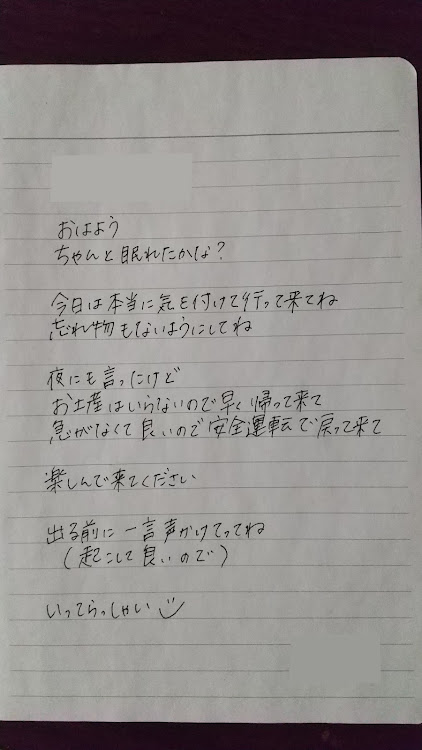 おはよう
ちゃんと眠れたかな?
今日は本当に気を付けて行って来てね
忘れ物もないようにしてね
夜にも言ったけど
お土産はいらないので早く帰って来て
急がなくて良いので安全運転で戻って来て
楽しんで来てください
出る前に一言声かけてってね
(起こして良いので)
いってらっしゃい